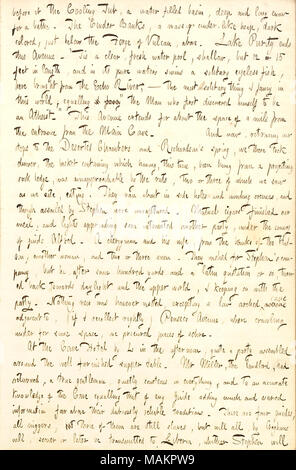 before it the Cooling Tub, a water filled basin, deep and long even
for a bather. The Cinder Banks, a mass of cinder-like heap, dark
colored, just below the Forge of Vulcan, above. Lake Purity ends
this Avenue. 'Tis a clear, fresh water pool, shallow, but 12 or 15
feet in length, and in its pure waters swims a solitary eyeless fish,
here brought from the Echo River; — the most solitary thing I fancy in
this world, equalling the Man who first discovered himself to be
an Atheist. This Avenue extends for about the space of a mile from
the entrance from the Main Cave. And now, retracing our
steps to the Deserted Chambers and Richardson's spring, we there took
dinner, the basket containing which among this time, been lying near a projecting
rock ledge, was unapproachable by the rats, two or three of which we saw
as we sate, eating. They ran about in side holes and winding crevices and
though assailed by Stephen were unaffrighted. Matthew before finished our
meal, and lights approaching soon another party, under the convoy
of guide Alfred. A clergyman and his wife, from the banks of the Hud-
son, another woman, and two or three men. They wished for Stephen's com-
pany, but he after some hundred yards and a Latin quotation or so turned
all back towards daylight and the upper world, I keeping on with the
party. Nothing new was however visited excepting a low arched, narrow cave
adjacent to, (if I recollect rightly) Pensico Avenue where crawling
under for some space we procured pieces of
At the Cave Hotel by 4 in the afternoon, quite a party assembled
around the well furnished supper table. Mr Miller, the landlord, had
returned, a true gentleman mostly courteous in everything, and to an accurate
knowledge of the Cave equalling that of any guide adding much and sacred
information far above their intrinsically reliable traditions. There are four guides
all niggers. Three of them are still slaves, but will all by Grahams
will, sooner or later be transmitted to Liberia, whither Stephen will
alamy
Image ID: MAKPW9
www.alamy.com